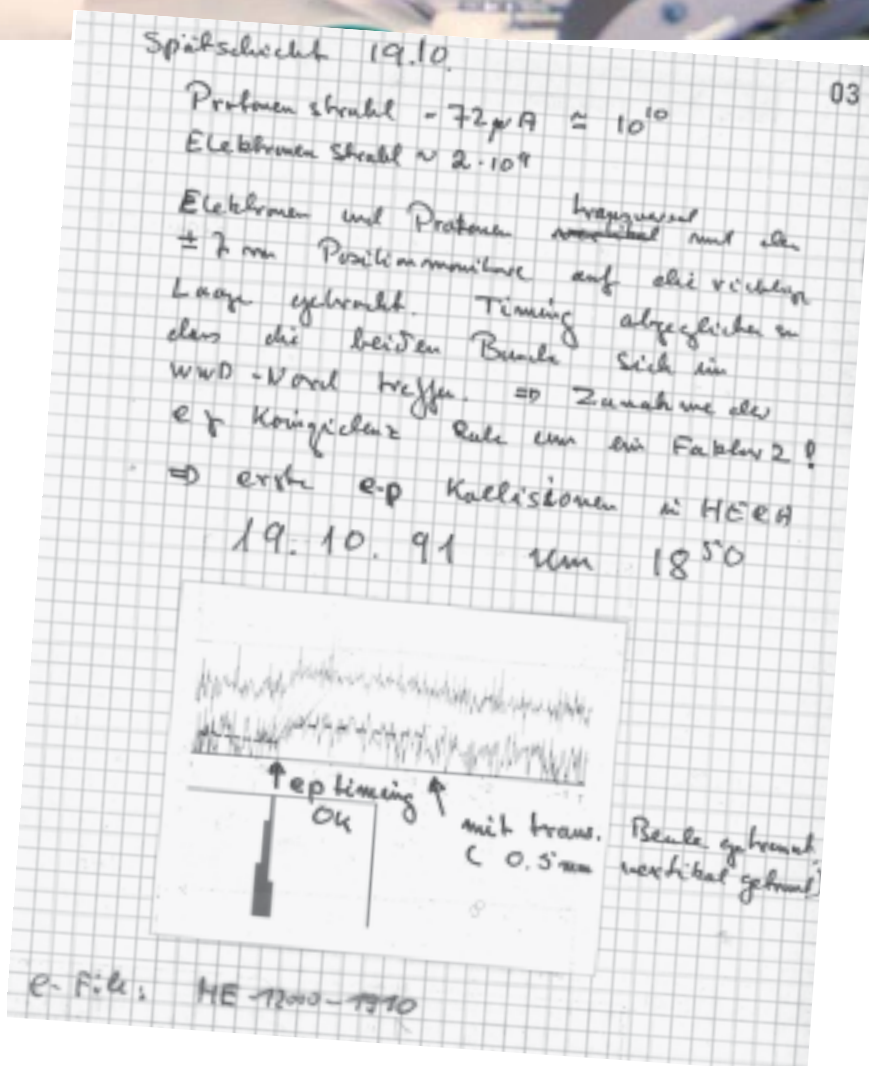 Spätschicht 19.10.
03
Protonen strahl - 72 µA ≃ 10¹⁰
Elektronen Strahl ~ 2·10⁹
Elektronen und Protonen transversal mit den
± 7 m Positionmonitore auf die richtige
Lage gebracht. Timing abgeglichen so
dass die beiden Bunche sich im
WWD-Nord treffen. ⇒ Zunahme der
e γ Koinzidenz Rate um ein Faktor 2 !
⇒ erste e-p Kollisionen in HERA
19. 10. 91 um 18⁵⁰
ep timing
OK
mit trans. Beule getrennt
( 0.5 mm vertikal getrennt)
e-File: HE-12000-1910